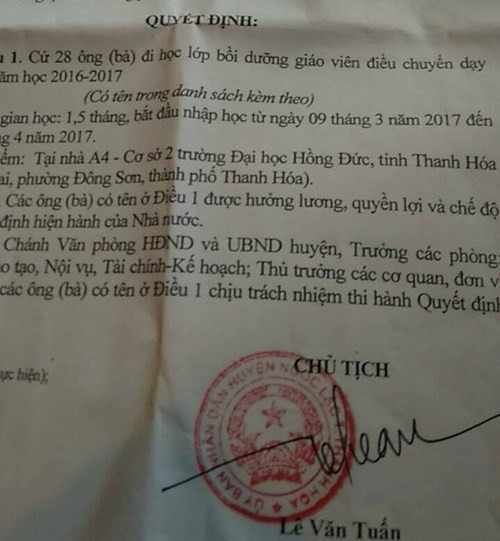 QUYẾT ĐỊNH:
1. Cử 28 ông (bà) đi học lớp bồi dưỡng giáo viên điều chuyển dạy
ăm học 2016-2017
(Có tên trong danh sách kèm theo)
gian học: 1,5 tháng, bắt đầu nhập học từ ngày 09 tháng 3 năm 2017 đến
g 4 năm 2017.
ểm: Tại nhà A4 - Cơ sở 2 trường Đại học Hồng Đức, tỉnh Thanh Hóa
ai, phường Đông Sơn, thành phố Thanh Hóa).
Các ông (bà) có tên ở Điều 1 được hưởng lương, quyền lợi và chế độ
định hiện hành của Nhà nước.
Chánh Văn phòng HĐND và UBND huyện, Trưởng các phòng:
o tạo, Nội vụ, Tài chính-Kế hoạch; Thủ trưởng các cơ quan, đơn v
các ông (bà) có tên ở Điều 1 chịu trách nhiệm thi hành Quyết định
ực hiện);
CHỦ TỊCH
ỦY BAN NHÂN DÂN HUYỆN NGỌC LẶC
Lê Văn Tuấn